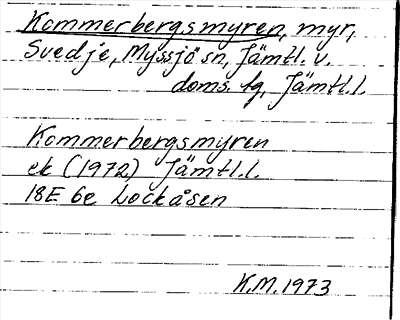 Kommerbergsmyren, myr,
Svedje, Myssjö sn, Jämtl. v.
doms. fg, Jämtl.l.
Kommerbergsmyren
ek (1972) Jämtl.l.
18E 6e Lockåsen
K.M. 1973